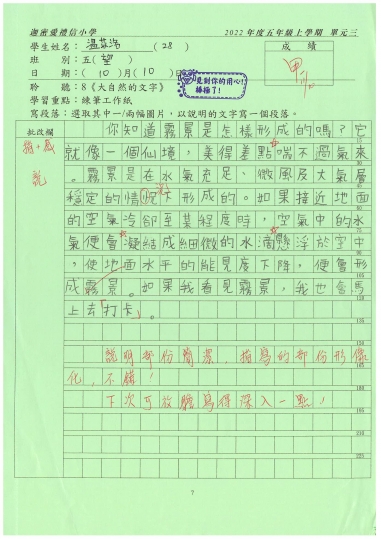 迦密愛禮信小學 2022 年度五年級上學期 單元三
學生姓名：溫 (28) 成績
班 別：五(望) 甲
日 期：(10)月(10)日 見到你的用心！
棒極了！
聆 聽：8《大自然的文字》
學習重點：練筆工作紙
寫段落：選取其中一/兩幅圖片，以說明的文字寫一個段落。
批改欄 你知道霧景是怎樣形成的嗎？它
就像一個仙境，美得差點喘不過氣來
。霧景是在水氣充足、微風及大氣層
穩定的情況下形成的。如果接近地面
的空氣冷卻至某程度時，空氣中的水
氣便會凝結成細微的水滴懸浮於空中
，使地面水平的能見度下降，便會形
成霧景。如果我看見霧景，我也會馬
上去「打卡」。
說明部份簡潔，描寫的部份形像
化，不錯！
下次可放膽寫得深入一點！
7